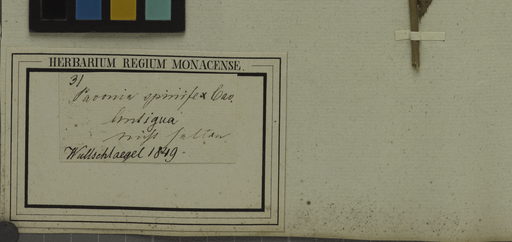 HERBARIUM REGIUM MONACENSE.
31
Pavonia spinifex Cav.
Antigua
nicht selten
Wullschlaegel 1849.